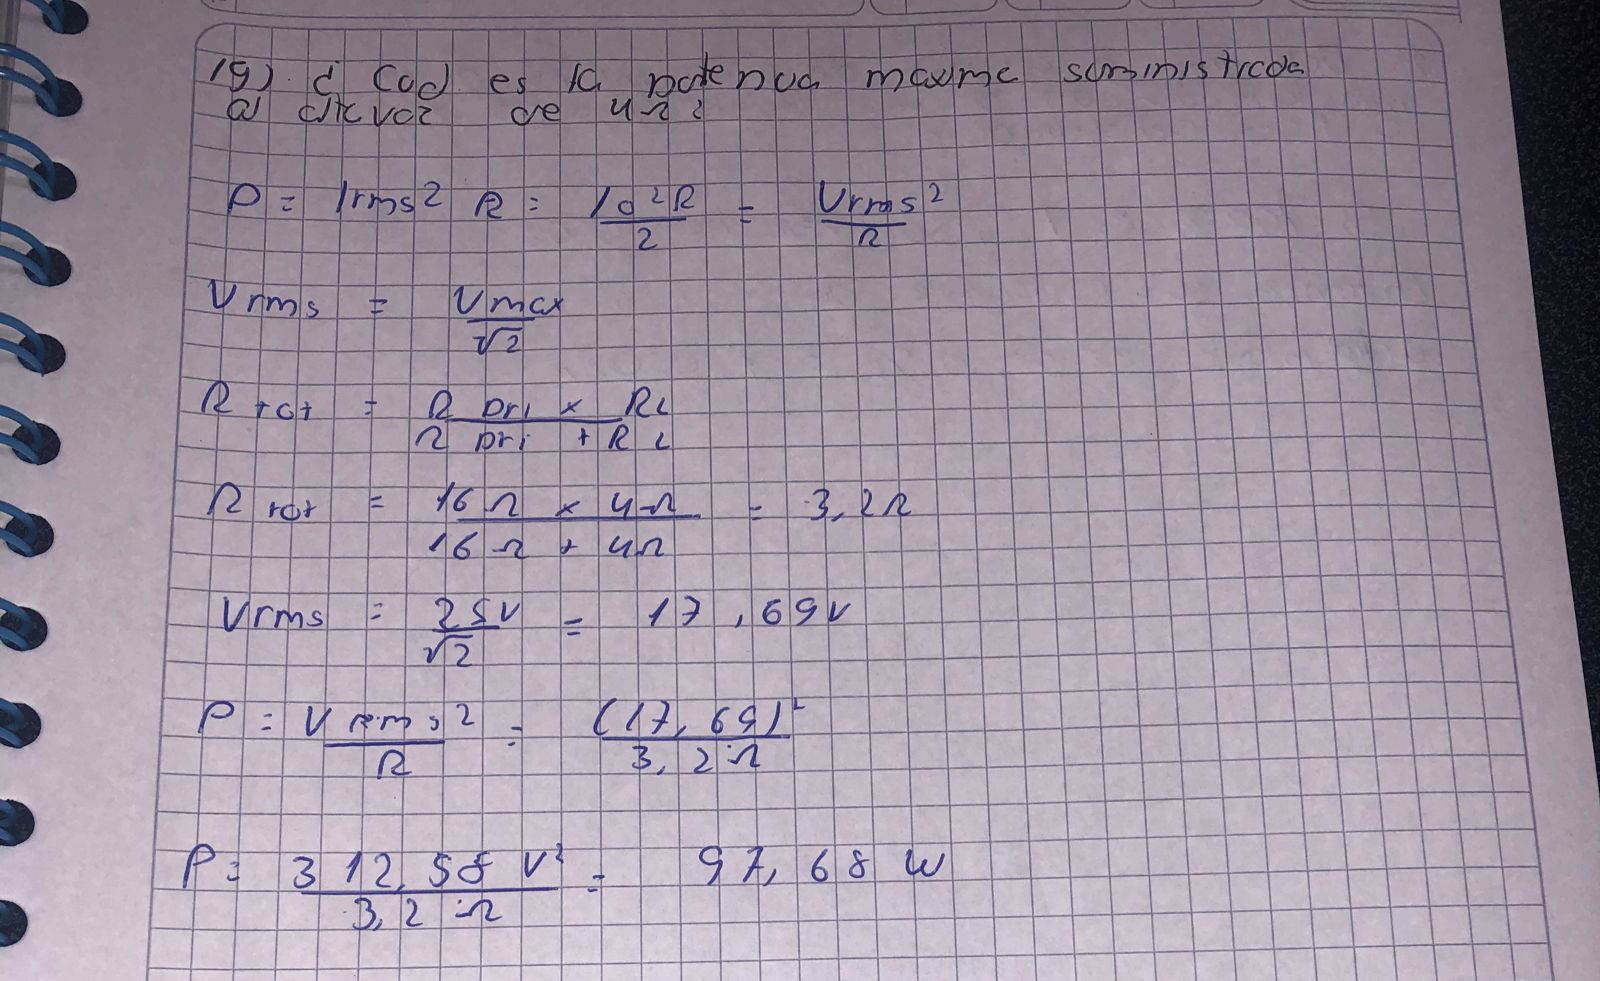 19) ¿ Cual es la potencia maxima suministrada
al altavoz de 4Ω?
P = Irms² R = Io²R / 2 = Vrms² / R
Vrms = Vmax / √2
R tot = R pri x RL / R pri + RL
R tot = 16Ω x 4Ω / 16Ω + 4Ω = 3,2Ω
Vrms = 25V / √2 = 17,69V
P = Vrms² / R = (17,69)² / 3,2Ω
P = 312,58 V² / 3,2 Ω = 97,68 W